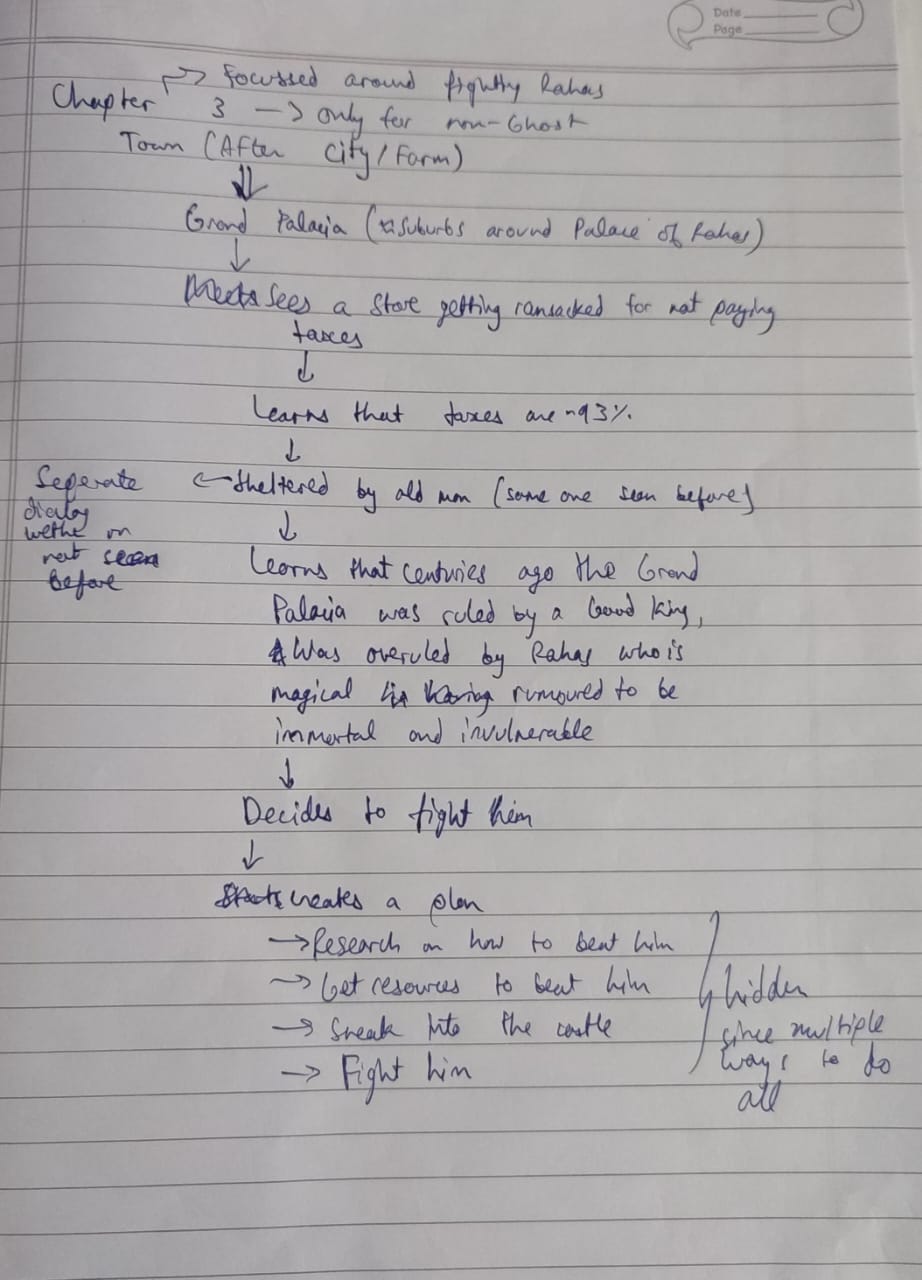 Date
Page
→ Focussed around fightty Rahas
Chapter 3 → only for non-Ghost
Town (After City/Farm)
↓
Grand Palacia (Suburbs around Palace of Rahas)
↓
Sees a store getting ransacked for not paying
taxes
↓
Learns that taxes are ~93%.
↓
← Sheltered by old man (some one seen before)
Seperate
dialog
wethe or
not seen
before
↓
Learns that centuries ago the Grand
Palacia was ruled by a Good King,
Was overuled by Rahas who is
magical rumoured to be
immortal and invulnerable
↓
Decides to fight him
↓
creates a plan
→ Research on how to beat him
→ Get resources to beat him
→ Sneak into the castle
→ Fight him
hidden
since multiple
ways to do
all